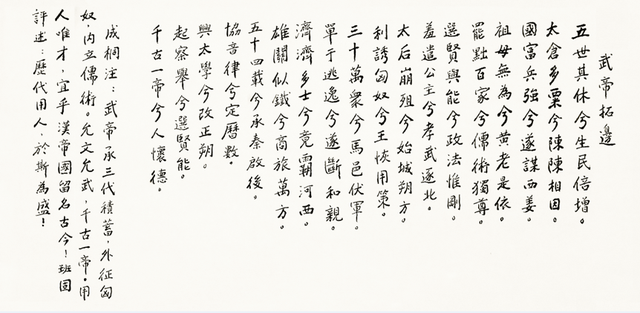 武帝拓邊
五世其休兮生民倍增。
太倉多粟兮陳陳相因。
國富兵強兮遂謀西羌。
祖母無為兮黃老是依。
罷黜百家兮儒術獨尊。
選賢與能兮政法惟剛。
羞遣公主兮孝武逐北。
太后崩殂兮始城朔方。
利誘匈奴兮王恢用策。
三十萬衆兮馬邑伏軍。
單于逃逸兮遂斷和親。
濟濟多士兮竞霸河西。
雄關似鐵兮商旅萬方。
五十四载兮承秦啟後。
協音律兮定曆數。
興太學兮改正朔。
起察舉兮選賢能。
千古一帝兮人懷德。
成桐注：武帝承三代積蓄，外征匈
奴，内立儒術。允文允武，千古一帝。用
人唯才，宜乎漢帝國留名古今！班固
評述：歷代用人，於斯為盛！